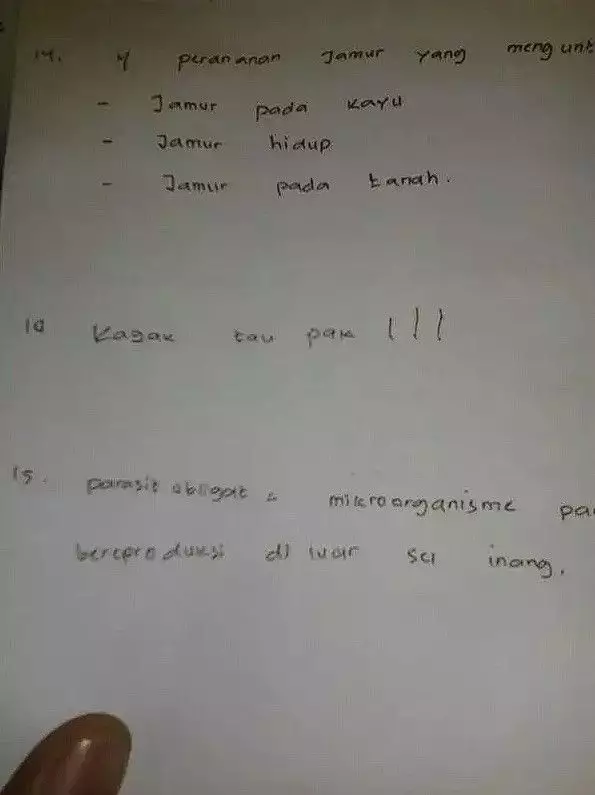 14. 4 perananan Jamur yang mengunt
- Jamur pada kayu
- Jamur hidup
- Jamur pada tanah.
10 Kagak tau pak !!!
15. parasit obligat = mikroorganisme pa
bereproduksi di luar sel inang.